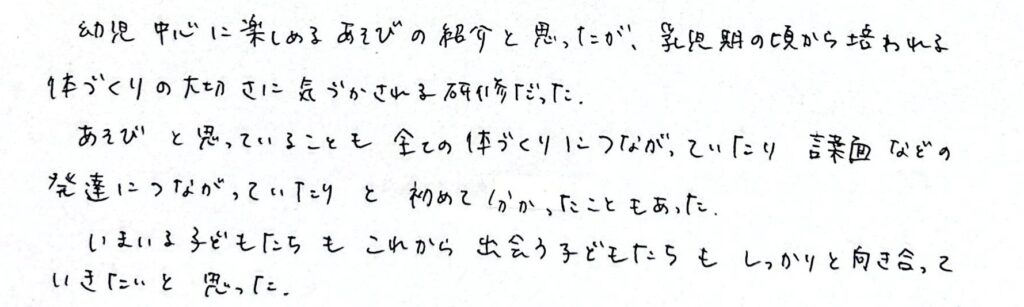 幼児中心に楽しめるあそびの紹介と思ったが、乳児期の頃から培われる
体づくりの大切さに気づかされる研修だった.
あそびと思っていることも全ての体づくりにつながっていたり 言葉面などの
発達につながっていたりと初めて分かったこともあった.
いまいる子どもたちもこれから出会う子どもたちもしっかりと向き合って
いきたいと思った.